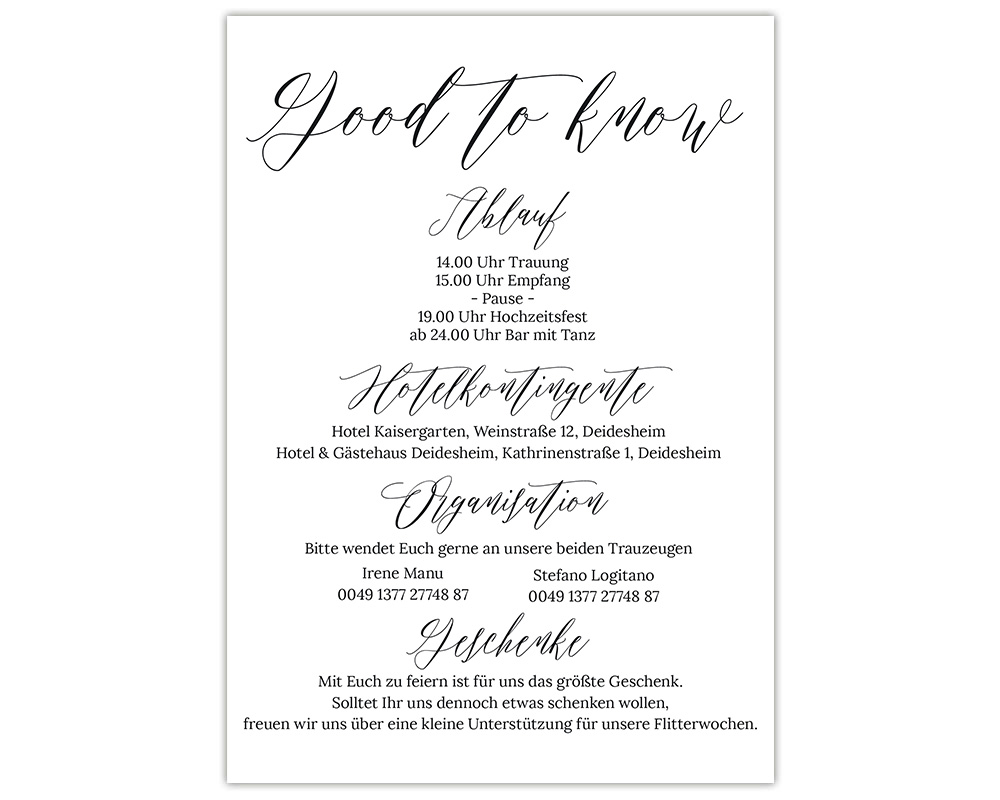 Good to know
Ablauf
14.00 Uhr Trauung
15.00 Uhr Empfang
- Pause -
19.00 Uhr Hochzeitsfest
ab 24.00 Uhr Bar mit Tanz
Hotelkontingente
Hotel Kaisergarten, Weinstraße 12, Deidesheim
Hotel & Gästehaus Deidesheim, Kathrinenstraße 1, Deidesheim
Organisation
Bitte wendet Euch gerne an unsere beiden Trauzeugen
Irene Manu
0049 1377 27748 87
Stefano Logitano
0049 1377 27748 87
Geschenke
Mit Euch zu feiern ist für uns das größte Geschenk.
Solltet Ihr uns dennoch etwas schenken wollen,
freuen wir uns über eine kleine Unterstützung für unsere Flitterwochen.